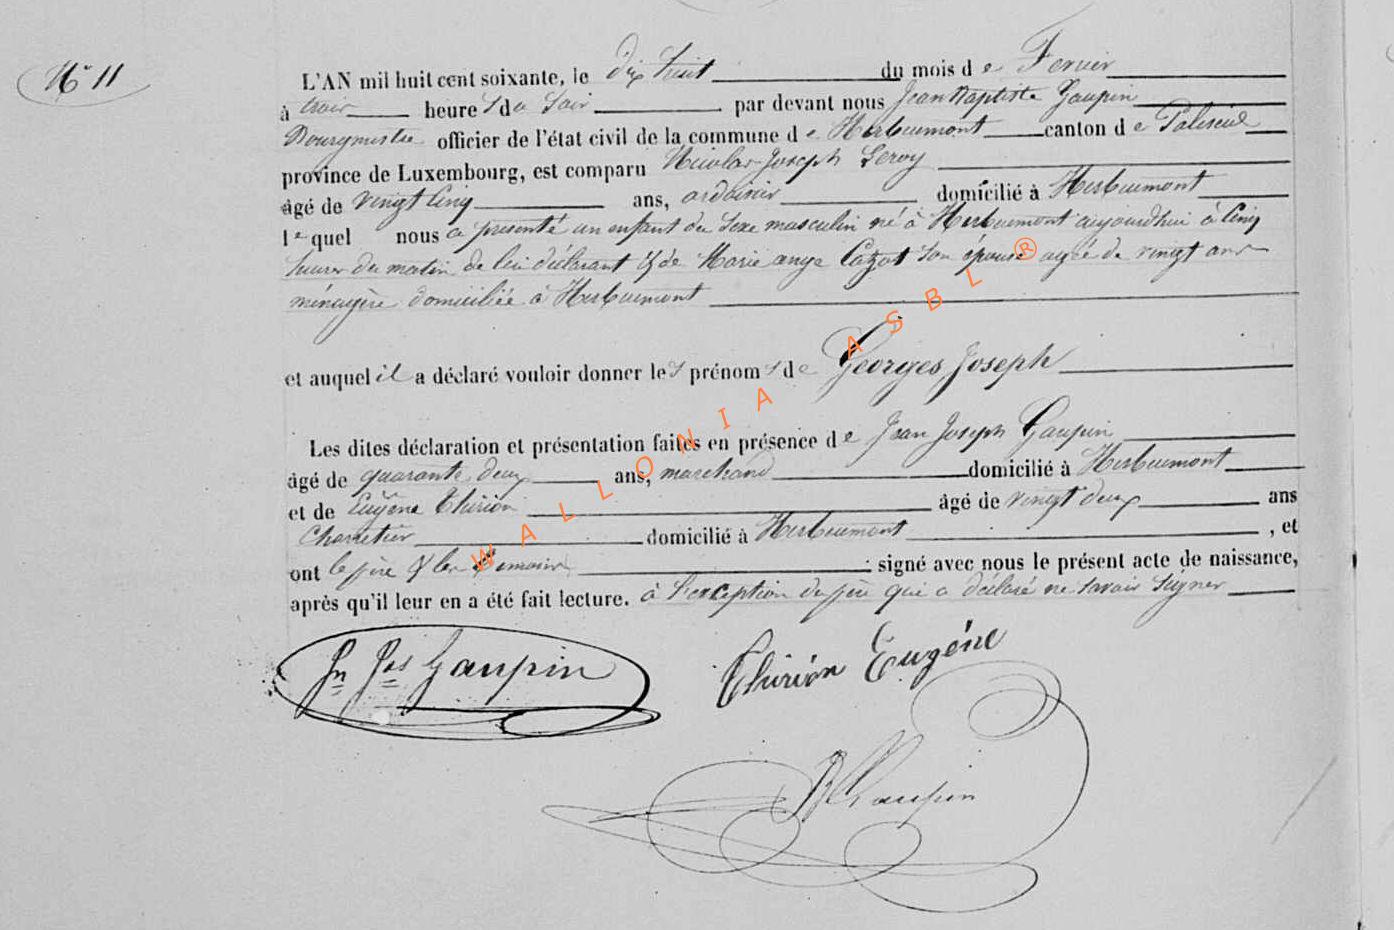 N° 11
L'AN mil huit cent soixante, le dix huit du mois de Fevrier
à trois heures du soir par devant nous Jean Baptiste Gaupin
Bourgmestre officier de l'état civil de la commune de Herbeumont canton de Paliseul
province de Luxembourg, est comparu Nicolas Joseph Leroy
âgé de vingt cinq ans, ardoisier domicilié à Herbeumont
lequel nous a presenté un enfant du sexe masculin né à Herbeumont aujourdhui à cinq
heures du matin de lui déclarant & de Marie ange Cazot son épouse agée de vingt ans
ménagère domiciliée à Herbeumont
et auquel il a déclaré vouloir donner les prénoms de Georges Joseph
Les dites déclaration et présentation faites en présence de Jean Joseph Gaupin
âgé de quarante deux ans, marchand domicilié à Herbeumont
et de Eugène Thirion âgé de vingt deux ans
Charretier domicilié à Herbeumont, et
ont le père & les témoins signé avec nous le présent acte de naissance,
après qu'il leur en a été fait lecture. à l'exception du père qui a déclaré ne savoir signer
Jn Jos Gaupin
Thirion Eugéne
JB Gaupin
WALLONIA ASBL ®